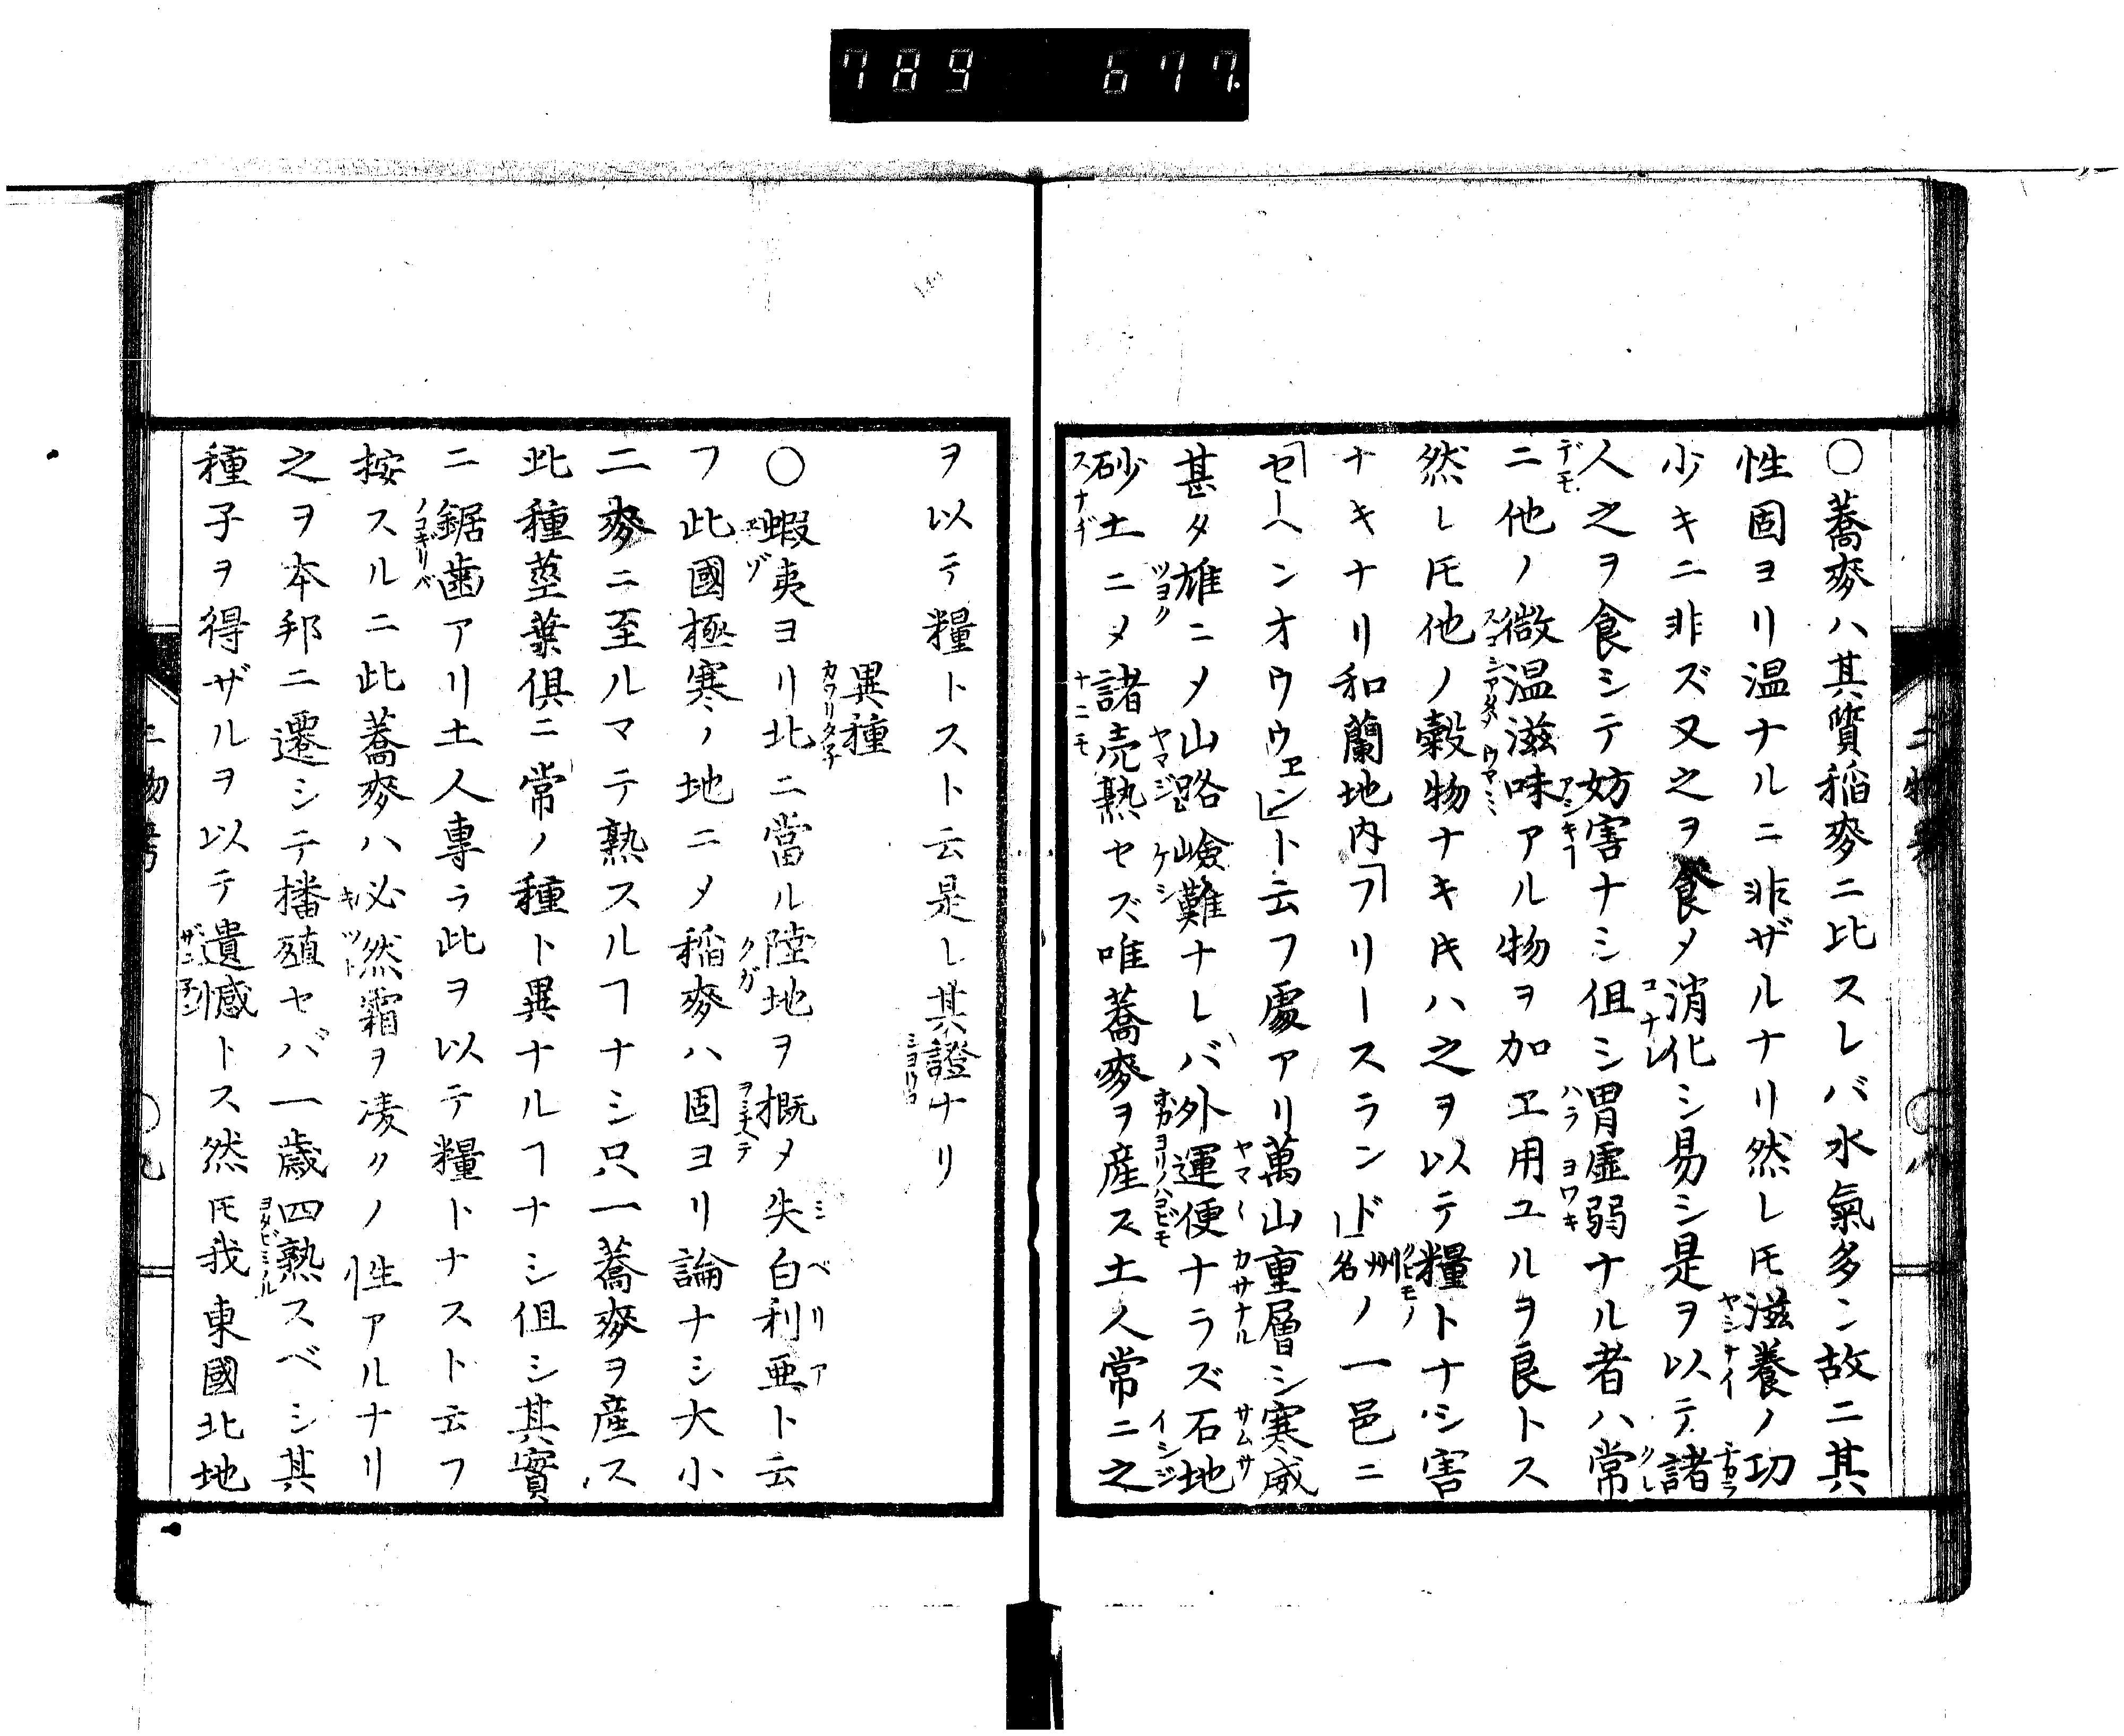 789 677.
○蕎麥ハ其質稲麥ニ比スレバ水氣多シ故ニ其
性固ヨリ温ナルニ非ザルナリ然レ𪜈滋養ノ功
少キニ非ズ又之ヲ食メ消化シ易シ是ヲ以テ諸
人之ヲ食シテ妨害ナシ但シ胃虚弱ナル者ハ常
ニ他ノ微温滋味アル物ヲ加ヱ用ユルヲ良トス
然レ𪜈他ノ穀物ナキ𪜈ハ之ヲ以テ糧トナシ害
ナキナリ和蘭地内「フリースランド」州名ノ一邑ニ
「セーヘンオウウヱン」ト云フ處アリ萬山重層シ寒威
甚タ雄ニメ山路嶮難ナレバ外運便ナラズ石地
砂土ニメ諸売熟セズ唯蕎麥ヲ産ス土人常ニ之
ヲ以テ糧トスト云是レ其證ナリ
異種
○蝦夷ヨリ北ニ當ル陸地ヲ概メ失白利亜ト云
フ此國極寒ノ地ニメ稲麥ハ固ヨリ論ナシ大小
二麥ニ至ルマテ熟スルヿナシ只一蕎麥ヲ産ス
此種莖葉倶ニ常ノ種ト異ナルヿナシ但シ其實
ニ鋸歯アリ土人專ラ此ヲ以テ糧トナスト云フ
按スルニ此蕎麥ハ必然霜ヲ凌クノ性アルナリ
之ヲ本邦ニ遷シテ播殖セバ一歳四熟スベシ其
種子ヲ得ザルヲ以テ遺憾トス然𪜈我東國北地